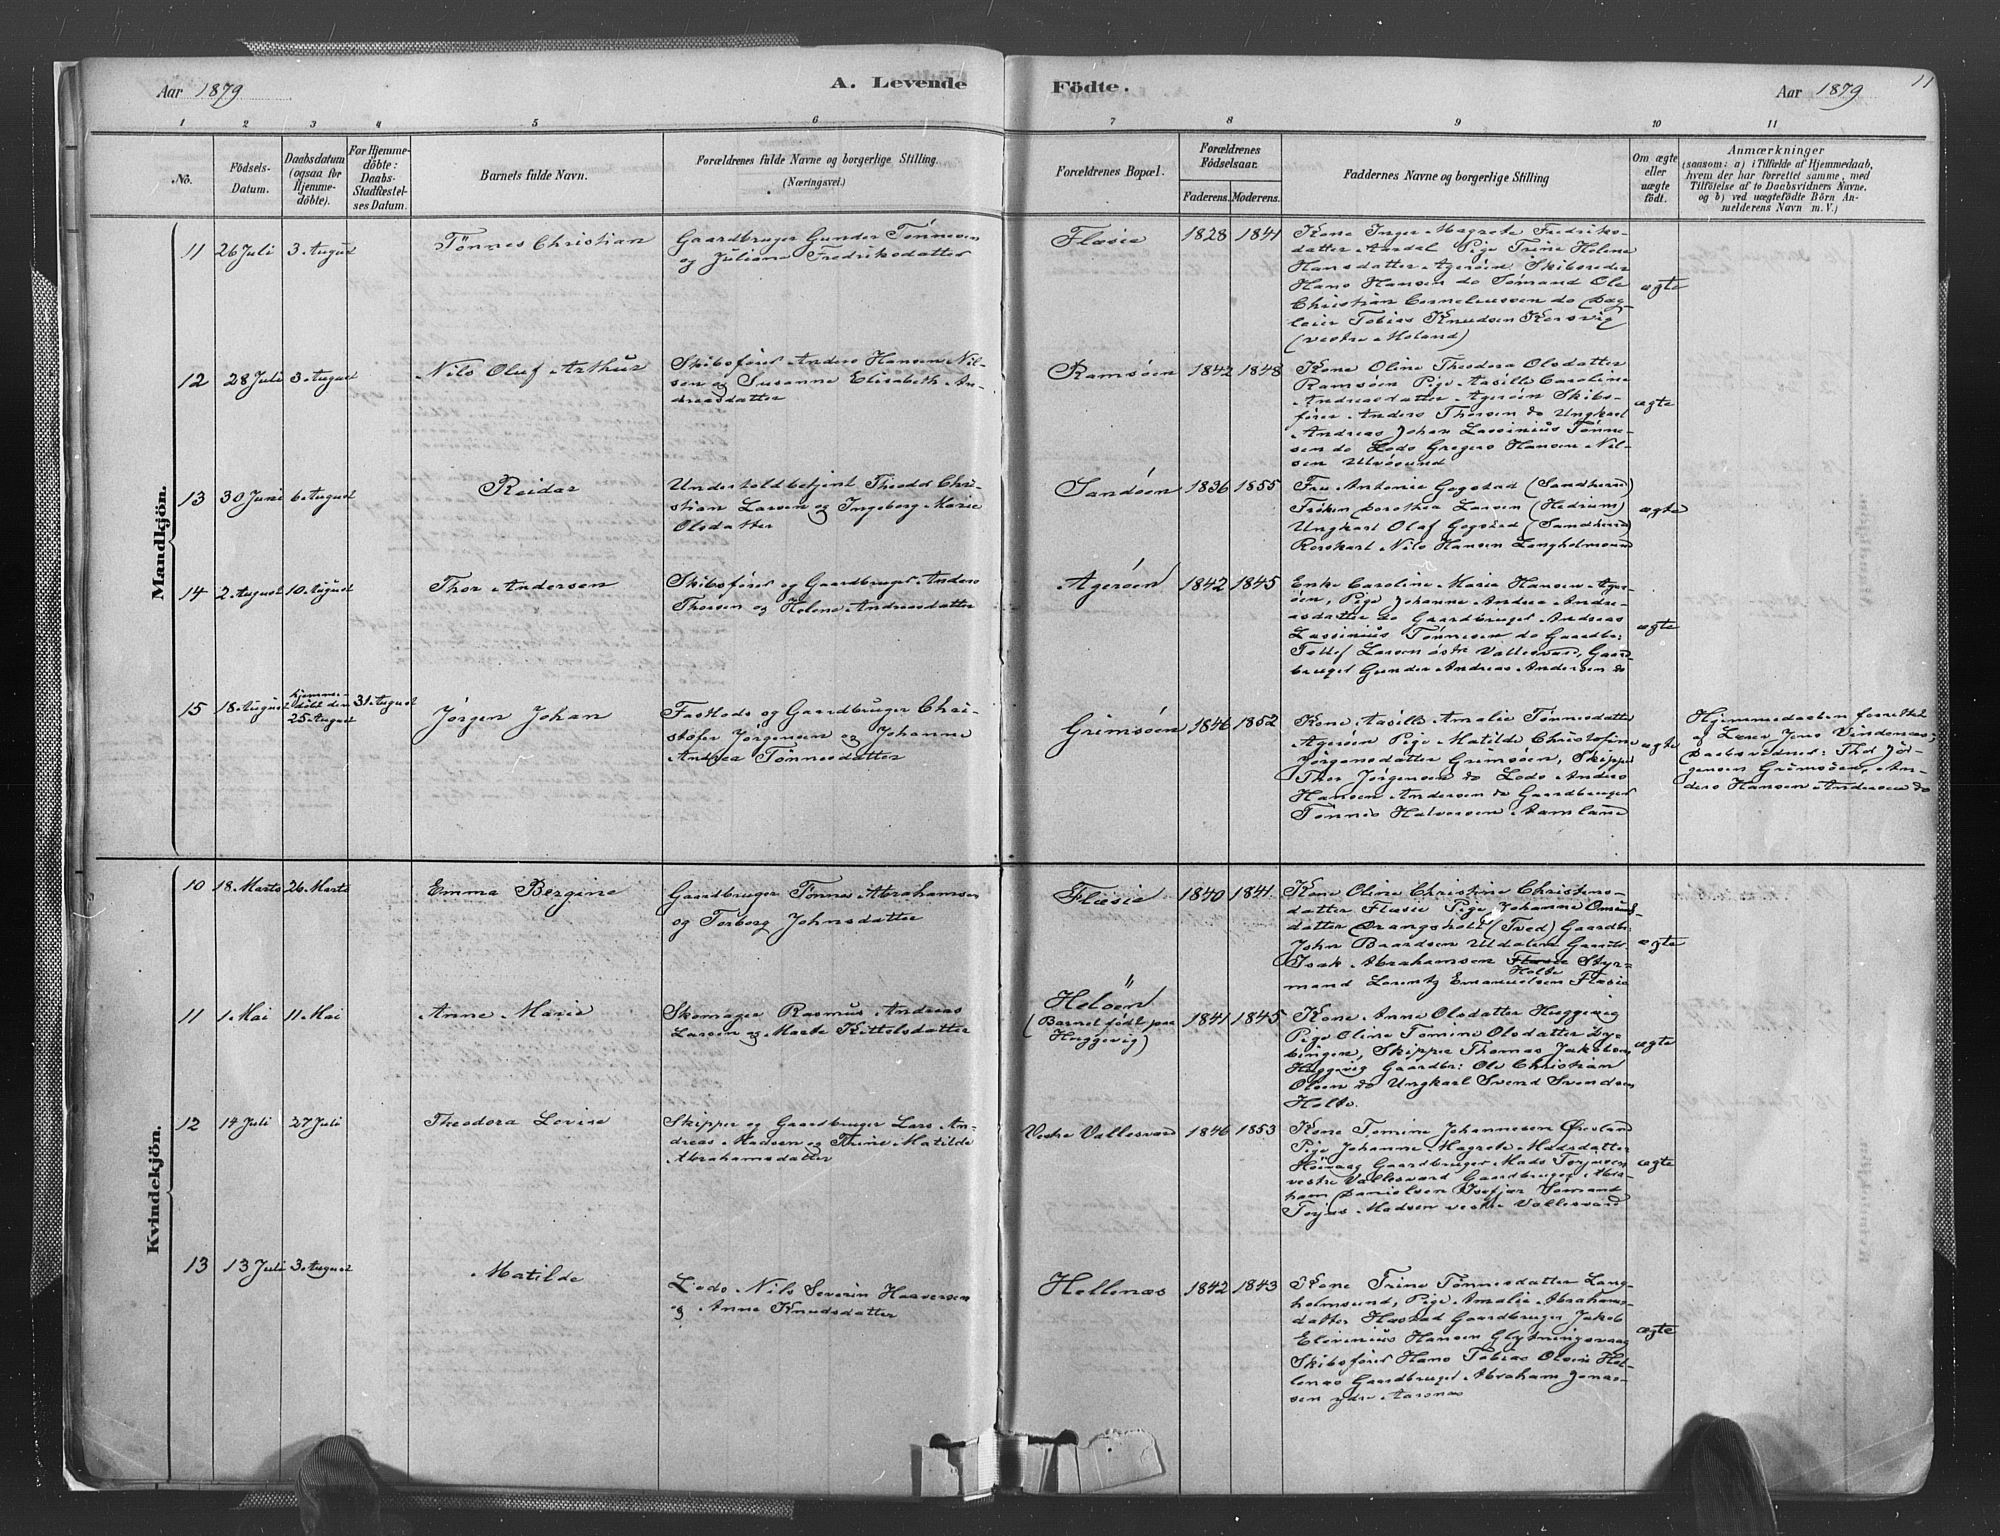 Aar 1879
A. Levende
Födte.
Aar 1879
11
1 2 3 4 5 6 7 8 9 10 11
No.
Födsels-
Datum.
Daabsdatum
(ogsaa for
Hjemme-
döbte).
For Hjemme-
döbte:
Daabs-
Stadfæstel-
ses Datum.
Barnets fulde Navn.
Forældrenes fulde Navne og borgerlige Stilling.
(Næringsvei.)
Forældrenes Bopæl.
Forældrenes
Födselsaar.
Faderens. Moderens.
Faddernes Navne og borgerlige Stilling
Om ægte
eller
uægte
födt.
Anmærkninger
(saasom: a) i Tilfælde af Hjemmedaab,
hvem der har forrettet samme, med
Tilföielse af to Daabsvidners Navne.
og b) ved uægtefödte Börn An-
melderens Navn m. V.)
Mandkjön.
11 26 Juli 3 August
Tønnes Christian
Gaardbruger Gunder Tønnesen
og Juliane Fredriksdatter
Flæsie
1828 1841
Kone Inger Magrete Fredriks-
datter Aardal Pige Trine Helene
Hansdatter Agerøen Skibsreder
Hans Hansen do Sømand Ole
Christian Corneliussen do Dag-
leier Tobias Knudsen Korsvig
(vestre Moland)
ægte
12 28 Juli 3 August
Nils Oluf Arthur
Skibsfører Anders Hansen Nil-
sen og Susanne Elisabeth An-
dreasdatter
Ramsøen
1842 1848
Kone Oline Theodora Olsdatter
Ramsøen Pige Aasille Caroline
Andreasdatter Agerøen Skibs-
fører Anders Thorsen do Ungkarl
Andreas Johan Lassinius Tønne-
sen do Lods Gregers Hansen Nil-
sen Ulvøsund
ægte
13 30 Juni 6 August
Reidar
Underholdbetjent Theodor Chri-
stian Larsen og Ingeborg Marie
Olsdatter
Sandøen
1836 1855
Fru Antonie Gogstad (Sandherred)
Frøken Dorothea Larsen (Hedrum)
Ungkarl Olaf Gogstad (Sandherred)
Rorskarl Nils Hansen Langholmsund
ægte
14 2 August 10 August
Thor Andersen
Skibsfører og Gaardbruger Anders
Thorsen og Helene Andreasdatter
Agerøen
1842 1845
Enke Caroline Marie Hansen Age-
røen, Pige Johanne Andrea Andre-
asdatter do Gaardbruger Andreas
Lassinius Tønnesen do Gaardbr:
Tollef Larsen østre Vallesværd, Gaard-
bruger Gunder Andreas Andersen do
ægte
15 18 August
hjemme-
døbt den
25 August
31 August
Jørgen Johan
Fastlods og Gaardbruger Chri-
stofer Jørgensen og Johanne
Andrea Tønnesdatter
Grimsøen
1846 1852
Kone Aasille Amalie Tønnesdatter
Agerøen Pige Matilde Christofine
Jørgensdatter Grimsøen, Skipper
Thor Jørgensen do Lods Anders
Hansen Andersen do Gaardbruger
Tønnes Halvorsen Aamland
ægte
Hjemmedaaben forrettet
af Lærer Jens Vindenæs;
Daabsvidner: Thor Jør-
gensen Grimsøen, An-
ders Hansen Andersen do
Kvindekjön.
10 18 Marts 26 Marts
Emma Bergine
Gaardbruger Tønnes Abrahamsen
og Torborg Johnsdatter
Flæsie
1840 1841
Kone Oline Christine Christens-
datter Flæsie Pige Johanne Omunds-
datter Drangsholt (Tved) Gaardbr:
John Baardsen Uldalen Gaardb:
Isak Abrahamsen Flæsie Styr-
Holte
mand Lorentz Emanuelsen Flæsie
ægte
11 1 Mai 11 Mai
Anne Marie
Skomager Rasmus Andreas
Larsen og Marte Kittelsdatter
Heløen
(Barnet født paa
Huggevig)
1841 1845
Kone Anne Olsdatter Huggevig
Pige Oline Tomine Olsdatter Dy-
bingen, Skipper Thomas Jakobsen
Huggevig Gaardbr: Ole Christian
Olsen do Ungkarl Svend Svendsen
Holte.
ægte
12 14 Juli 27 Juli
Theodora Lovise
Skipper og Gaardbruger Lars An-
dreas Madsen og Thrine Matilde
Abrahamsdatter
Vestre Vallesværd
1846 1853
Kone Tomine Johannesen Øvesland
Pige Johanne Magrete Madsdatter
Høivaag Gaardbruger Mads Torjusen
vestre Vallesværd Gaardbruger Abra-
ham Danielsen Isefjær Sømand
Torjus Madsen vestre Vallesværd
ægte
13 13 Juli 3 August
Matilde
Lods Nils Severin Halvorsen
og Anne Knudsdatter
Hellenæs
1842 1843
Kone Trine Tønnesdatter Lang-
holmsund, Pige Amalie Abrahams-
datter Hæstad Gaardbruger Jakob
Elevinius Hansen Glytningsvaag
Skibsfører Hans Tobias Olsen Hel-
lenæs Gaardbruger Abraham Jonas-
sen ydre Aarsnæs
ægte